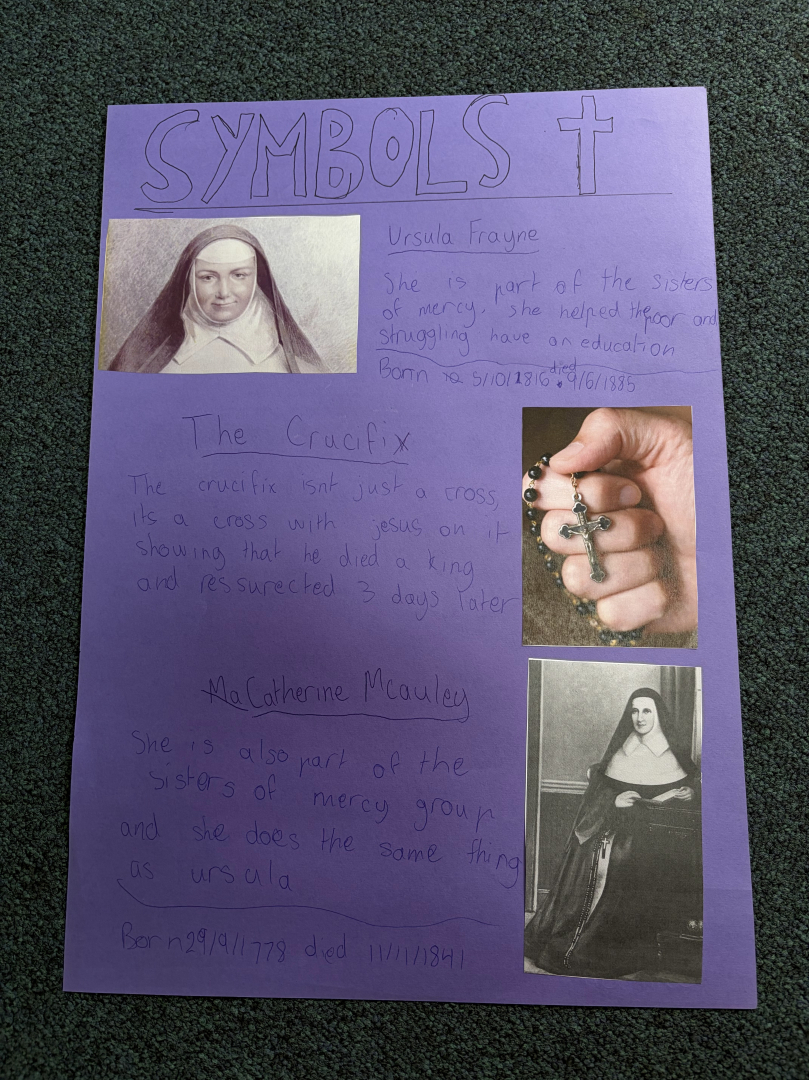 SYMBOLS
Ursula Frayne
She is part of the sisters
of mercy. she helped the poor and
struggling have an education
Born 5/10/1816 died 9/6/1885
The Crucifix
The crucifix isnt just a cross,
its a cross with jesus on it
showing that he died a king
and ressurected 3 days later
Catherine Mcauley
She is also part of the
Sisters of mercy group
and she does the same thing
as ursula
Born 29/9/1778 died 11/11/1841